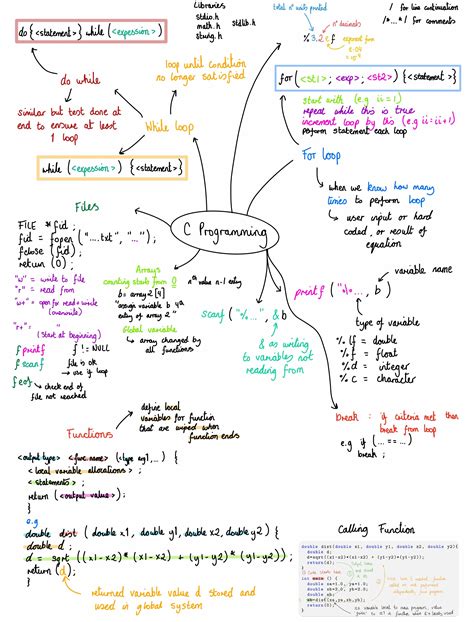 Libraries
stdio.h
math.h
string.h
stdlib.h
total n° units printed
n° decimals
% 3.2 f
exponent form
/ for line continuation
/*...*/ for comments
do {<statement>} while (<expression>)
do while
similar but test done at
end to ensure at least
1 loop
loop until condition
no longer satisfied
While loop
while (<expression>) {<statement>}
for (<st1>; <exp>; <st2>) {<statement>}
start with (e.g ii=1)
repeat while this is true
increment loop by this (e.g ii=ii+1)
perform statement each loop
For loop
when we know how many
times to perform loop
user input or hard
coded, or result of
equation
C Programming
Files
FILE *fid;
fid = fopen ("....txt", "...");
fclose (fid);
return (0);
"w" = write to file
"r" = read from
w+ = open for read + write
(overwrite)
"r+" =
(start at beginning)
fprintf
fscanf
f != NULL
file is ok
→ use if loop
feof
check end of
file not reached
Arrays
counting starts from 0
nth value n-1 entry
b = array2 [4]
"assign variable b 4th
entry of array 2"
Global variable
array changed by
all functions
scanf ("%...", &b
& as writing
to variables not
reading from
printf ("%...", b)
variable name
type of variable
% lf = double
% f = float
% d = integer
% c = character
break : if criteria met then
break from loop
e.g if (...==...)
break ;
Functions
define local
variables for function
that are wiped when
function ends
<output type> <func name> (<type arg1,...) {
<local variable allocations> ;
<statements> ;
return (<output value>) ;
}
e.g
double dist (double x1, double y1, double x2, double y2) {
double d ;
d = sqrt ((x1-x2)*(x1-x2) + (y1-y2)*(y1-y2));
return (d) ;
}
returned variable value d stored and
used in global system
Calling Function
double dist(double x1, double y1, double x2, double y2){
double d;
d=sqrt((x1-x2)*(x1-x2) + (y1-y2)*(y1-y2));
return(d);
}